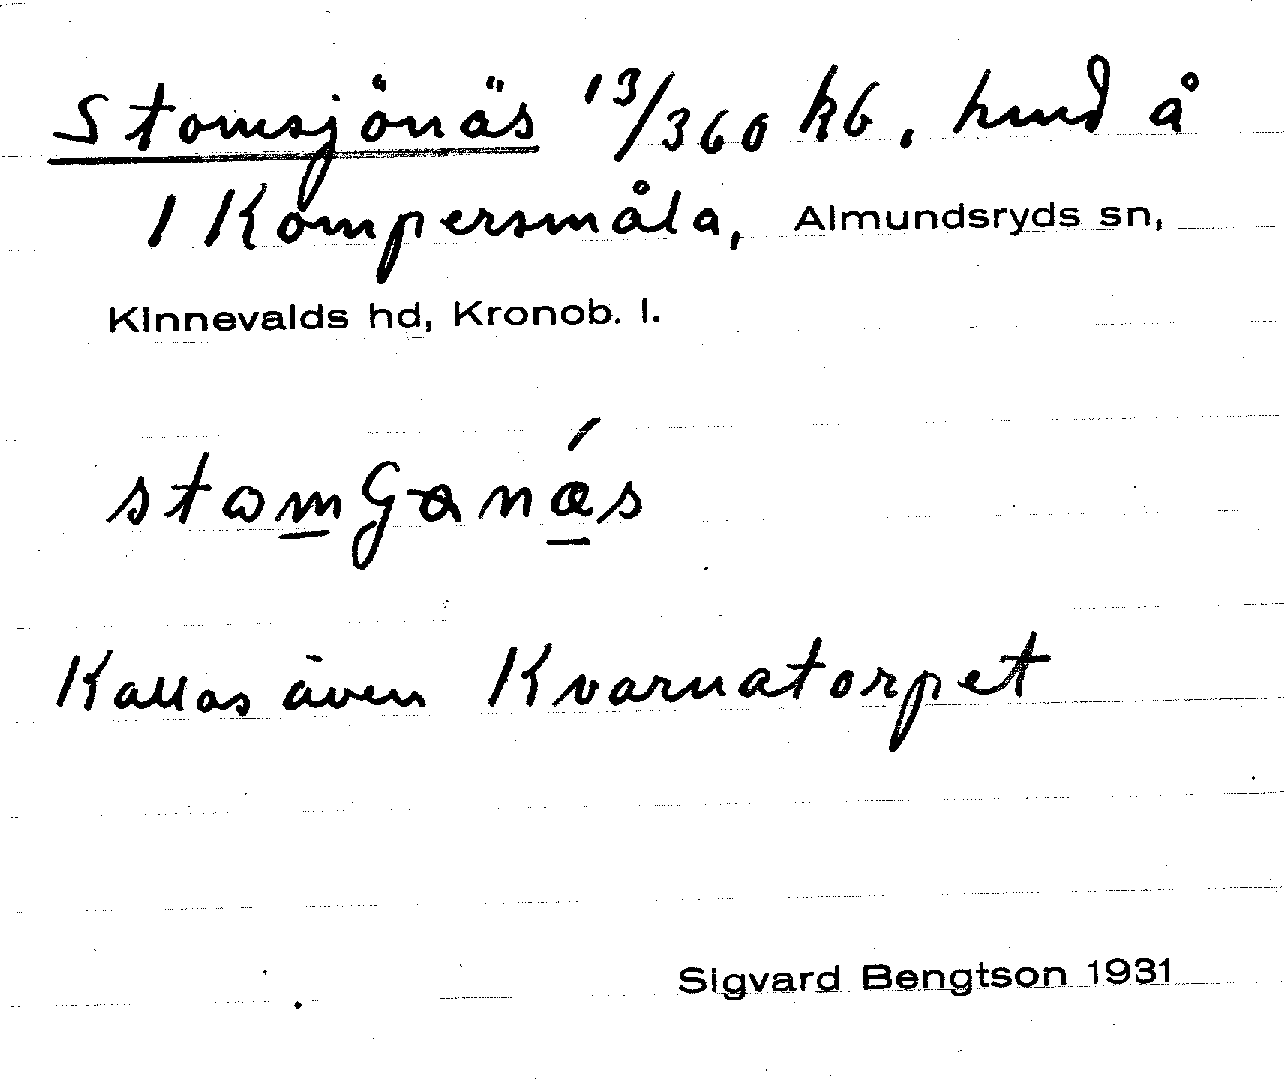 Stomsjönäs 13/360 kb. hmd å
1 Kompersmåla, Almundsryds sn,
Kinnevalds hd, Kronob. l.
Kallas även Kvarnatorpet
Sigvard Bengtson 1931